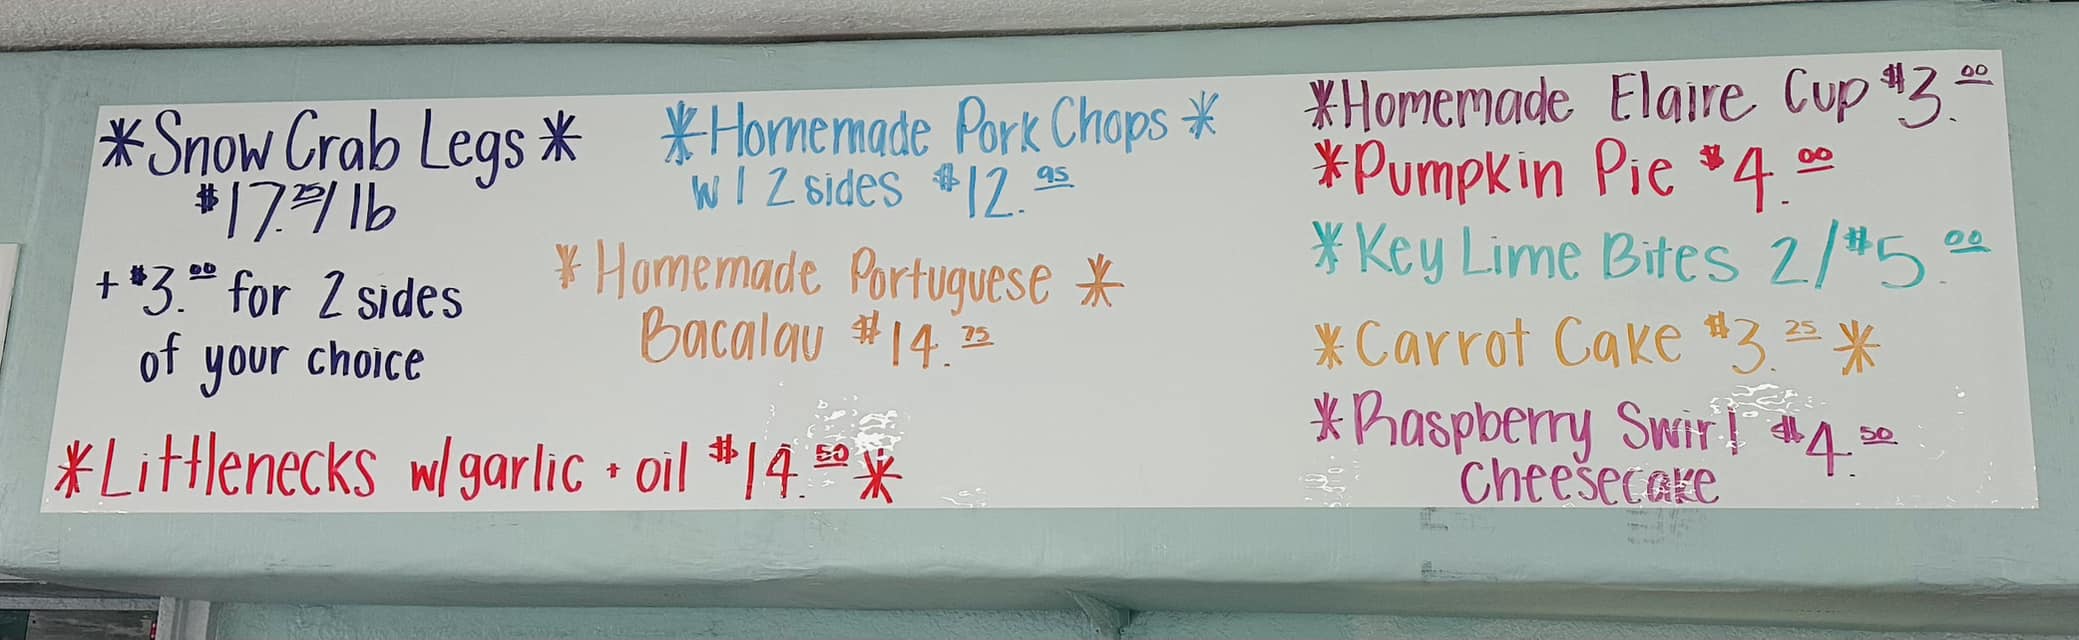 *Snow Crab Legs*
$17.25/lb
+$3.00 for 2 sides
of your choice
*Littlenecks w/garlic + oil $14.50*
*Homemade Pork Chops*
w/ 2 sides $12.95
*Homemade Portuguese*
Bacalau $14.75
*Homemade Elaire Cup $3.00
*Pumpkin Pie $4.00
*Key Lime Bites 2/$5.00
*Carrot Cake $3.25*
*Raspberry Swirl $4.50
Cheesecake